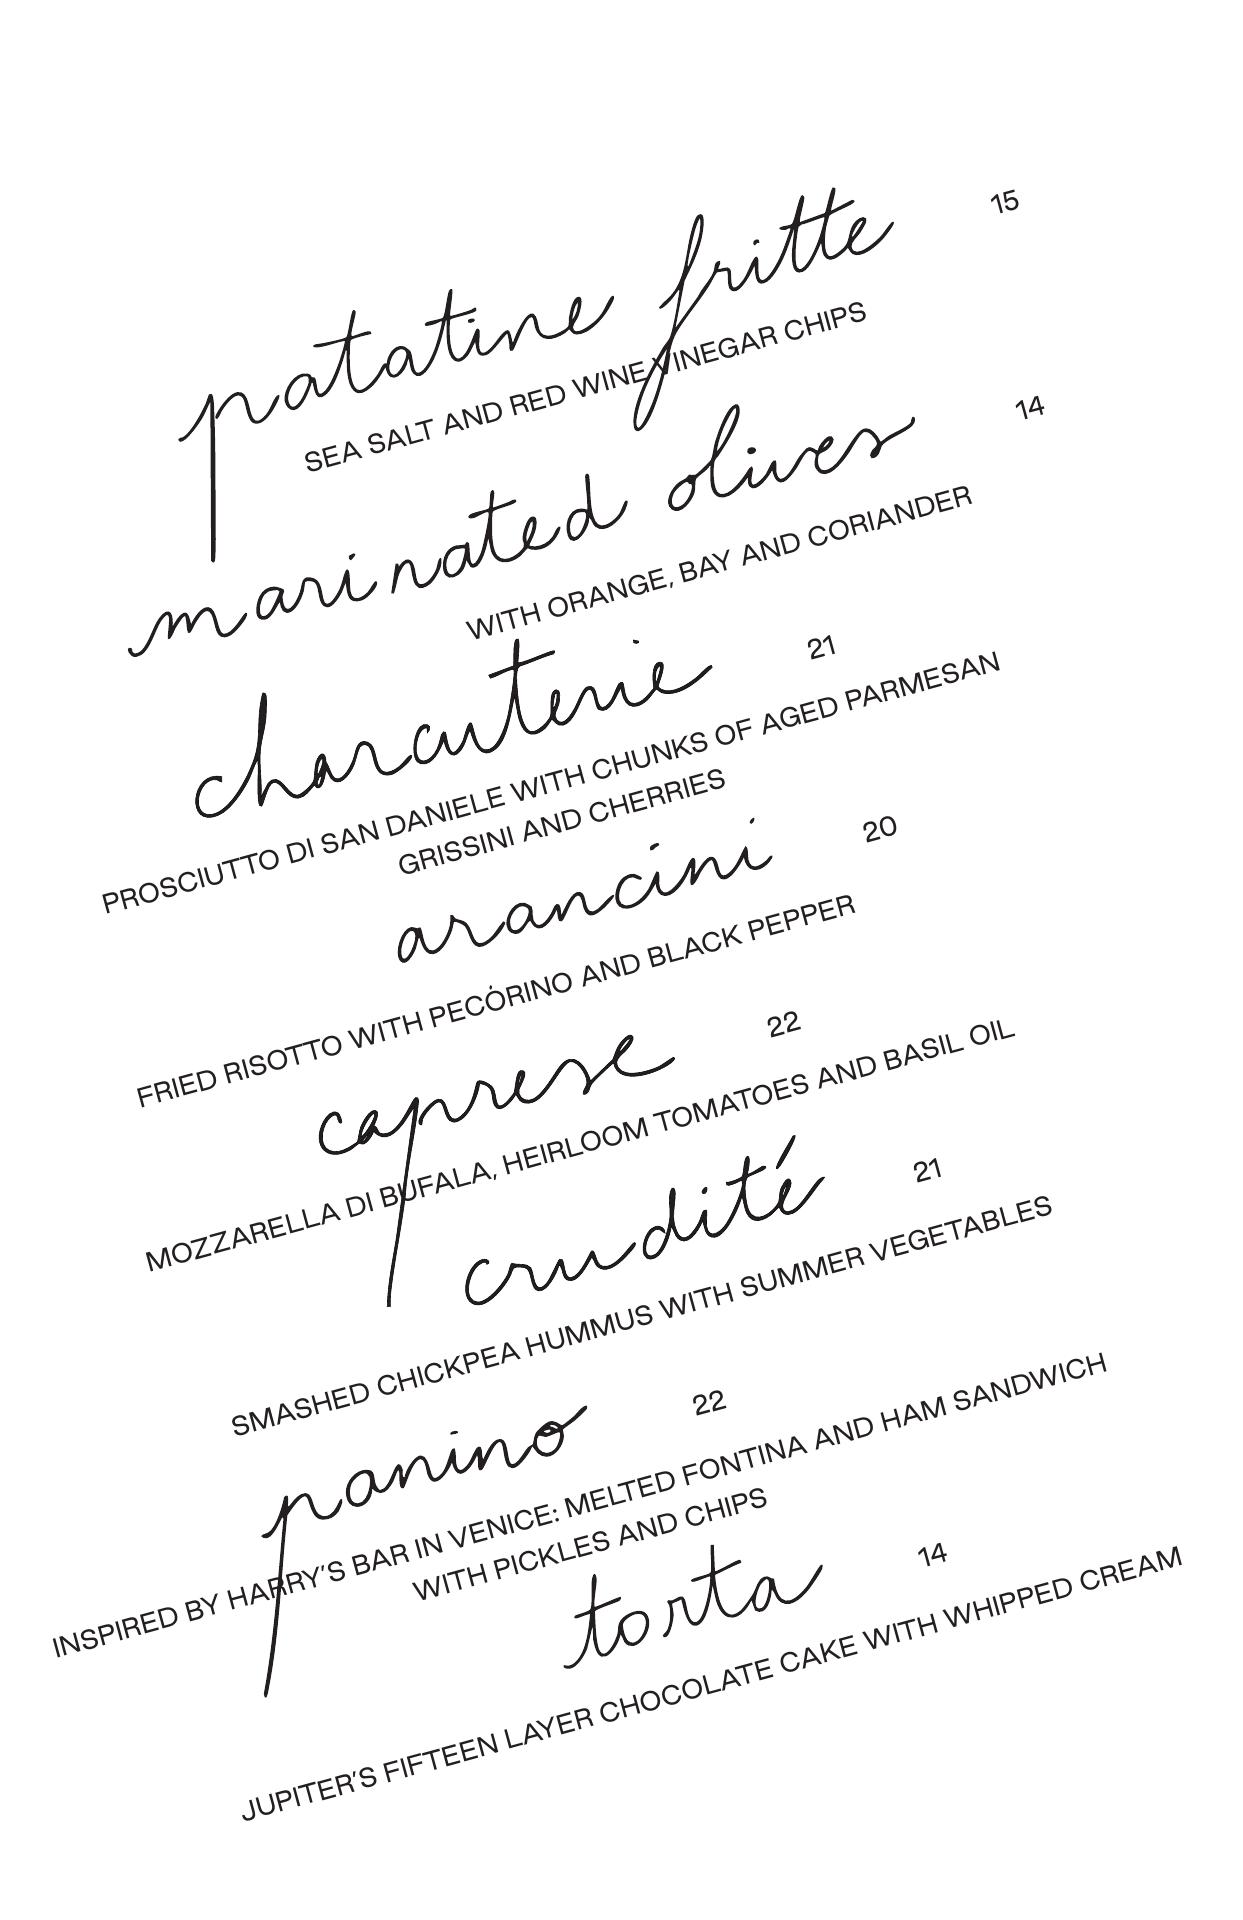 patatine fritte 15
SEA SALT AND RED WINE VINEGAR CHIPS
marinated olives 14
WITH ORANGE, BAY AND CORIANDER
charcuterie 21
PROSCIUTTO DI SAN DANIELE WITH CHUNKS OF AGED PARMESAN
GRISSINI AND CHERRIES
arancini 20
FRIED RISOTTO WITH PECORINO AND BLACK PEPPER
caprese 22
MOZZARELLA DI BUFALA, HEIRLOOM TOMATOES AND BASIL OIL
crudité 21
SMASHED CHICKPEA HUMMUS WITH SUMMER VEGETABLES
panino 22
INSPIRED BY HARRY'S BAR IN VENICE: MELTED FONTINA AND HAM SANDWICH
WITH PICKLES AND CHIPS
torta 14
JUPITER'S FIFTEEN LAYER CHOCOLATE CAKE WITH WHIPPED CREAM